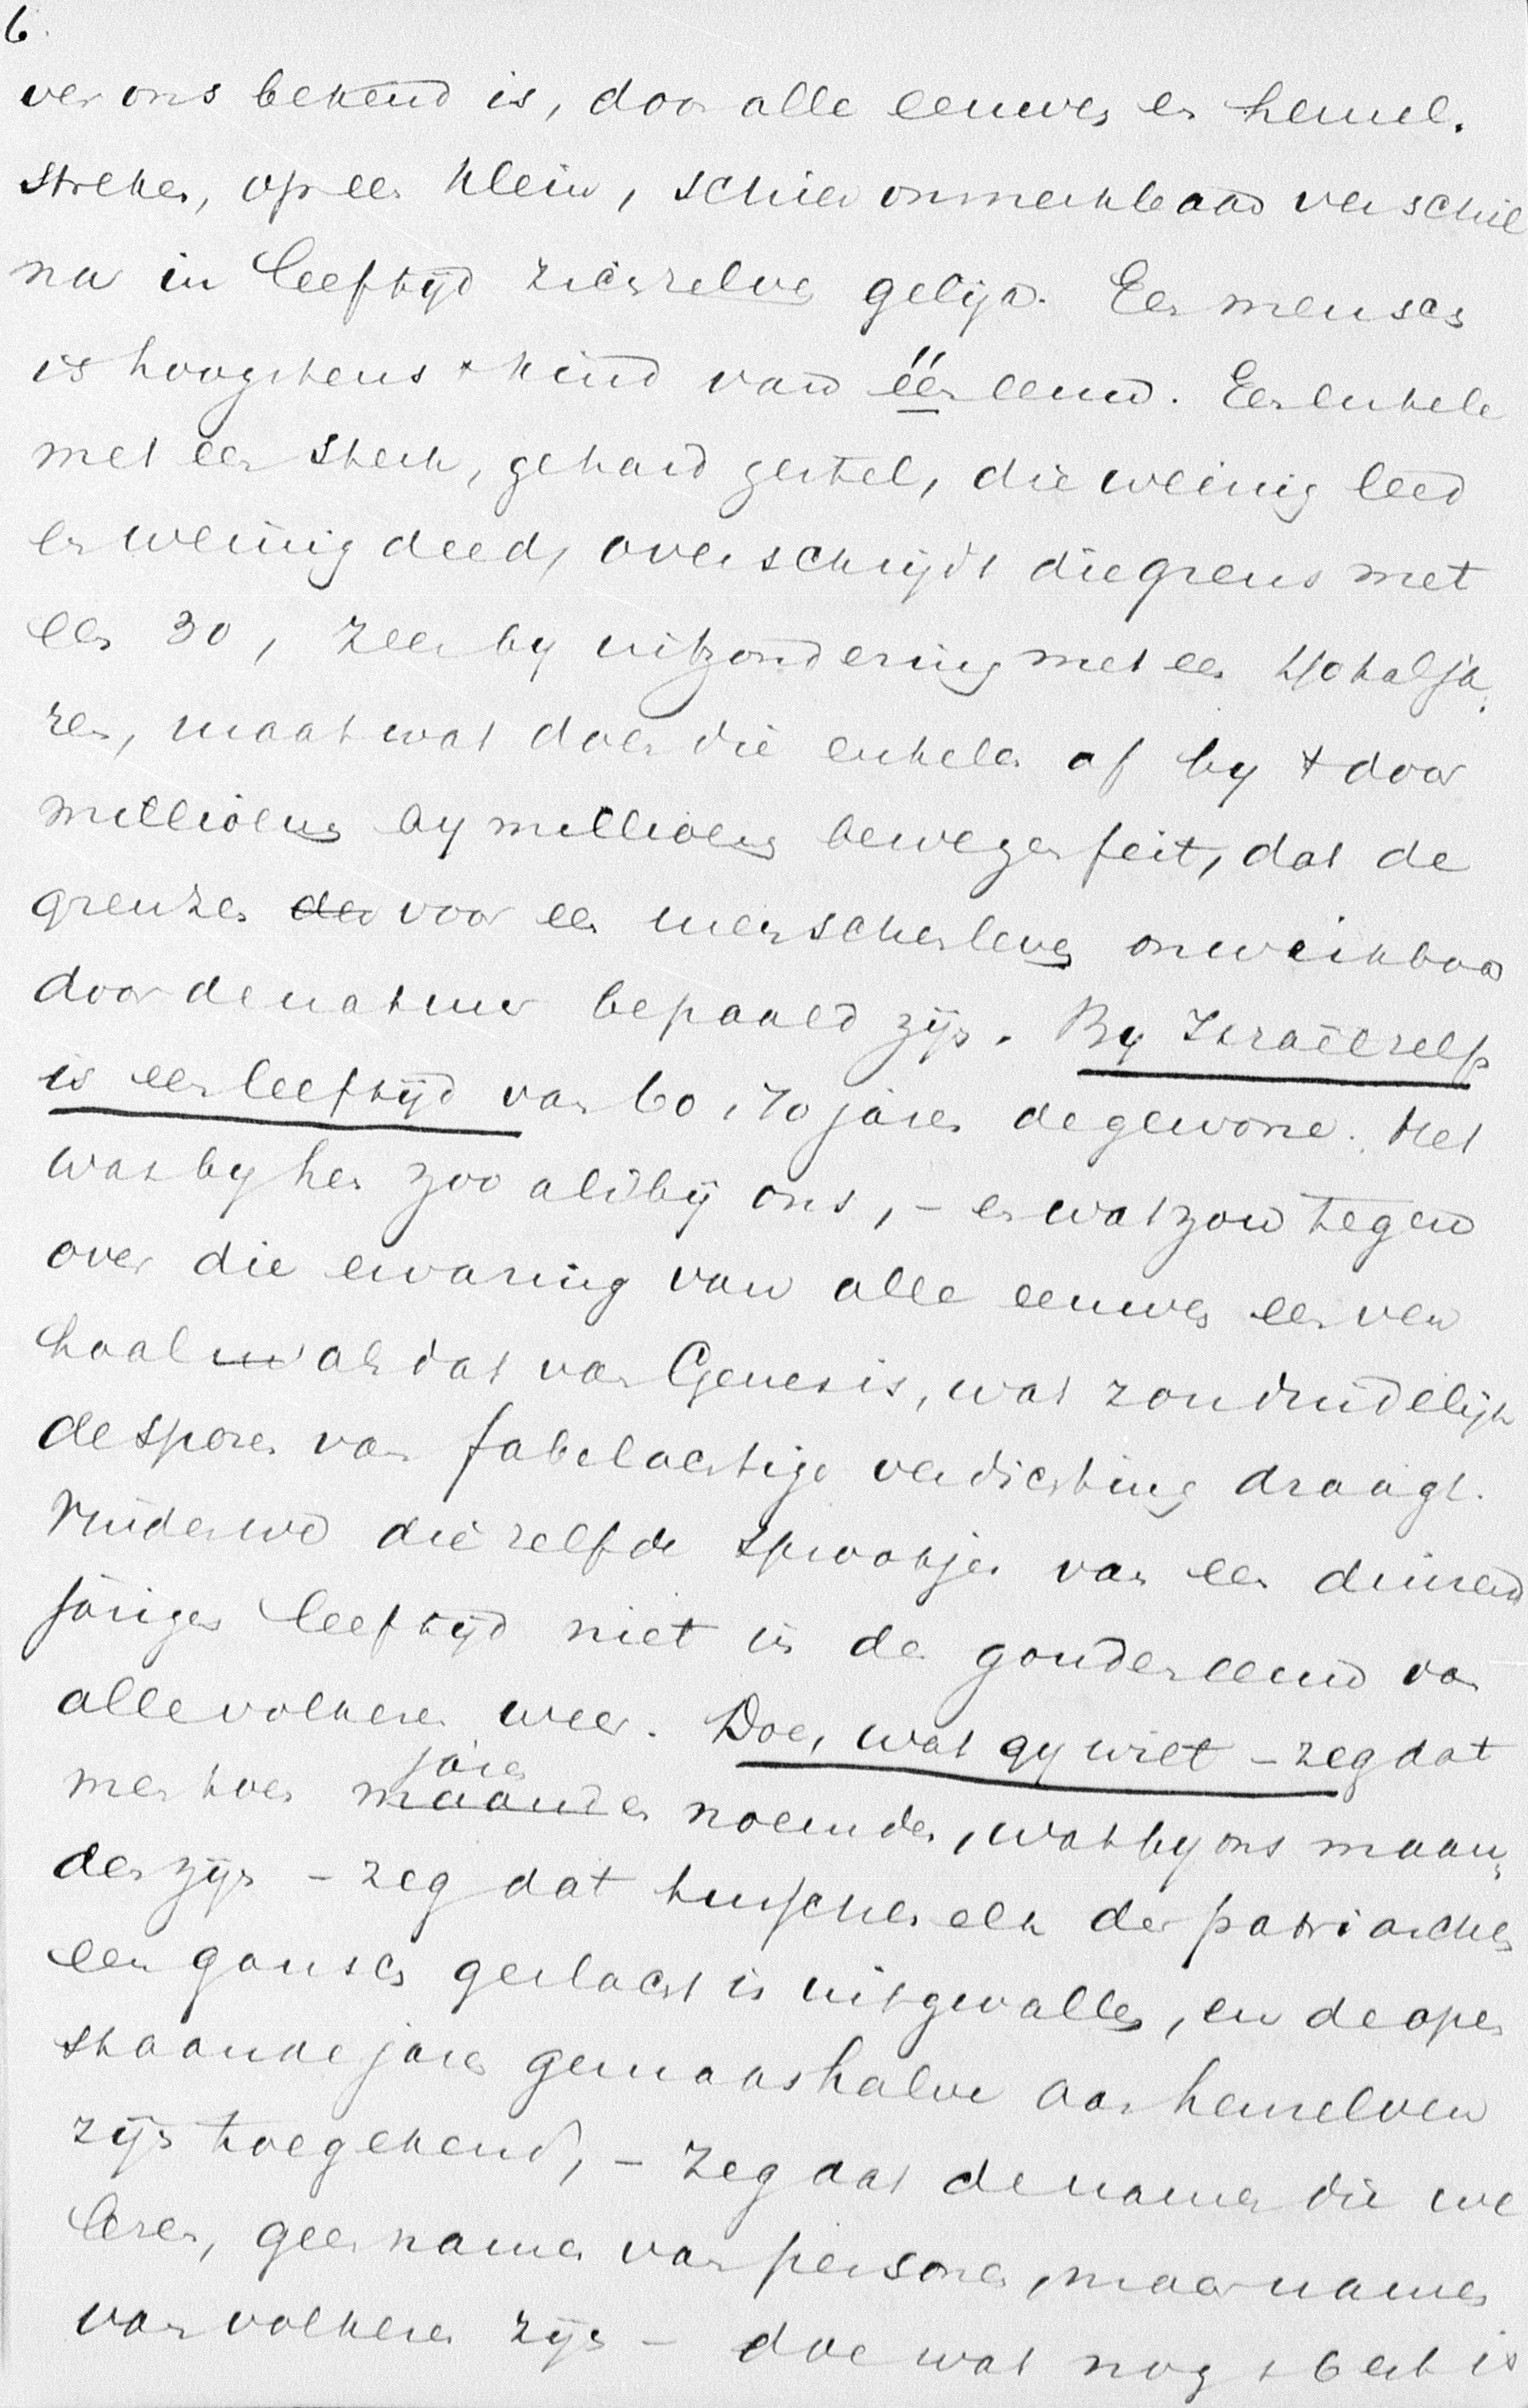 6.
ver ons bekend is, door alle eeuwen en hemel-
streken, op een klein, schier onmerkbaar verschil
na in leeftijd zichzelve gelijk. Een mensch
is hoogstens 't kind van één eeuw. Een enkele
met een sterk, gehard gestel, die weinig leed
en weinig deed, overschrijdt die grens met
een 30, zeer by uitzondering met een 40tal ja-
ren, maar wat doen die enkelen af by 't door
millioenen by millioenen bewezen feit, dat de
grenzen der voor een menschenleven onwrikbaar
door de natuur bepaald zijn. By Israël zelf
is een leeftijd van 60, 70 jaren de gewone. Het
was by hen zoo als bij ons, - en wat zou tegen
over die ervaring van alle eeuwen een ver
haal als dat van Genesis, wat zou duidelijk
de sporen van fabelachtige verdichting draagt.
Vinden we diezelfde sprookjes van een duizend
jarigen leeftijd niet in de gouden eeuw van
alle volkeren weer. Doe, wat gy wilt - zeg dat
jaren
men toen maanden noemde, wat by ons maan-
den zijn - zeg dat tusschen elk der patriarchen
een gansch geslacht is uitgevallen, en de open
staande jaren gemakshalve aan henzelven
zijn toegekend, - zeg dat de namen die we
lezen, geen namen van personen, maar namen
van volkeren zijn - doe wat nog 't best is